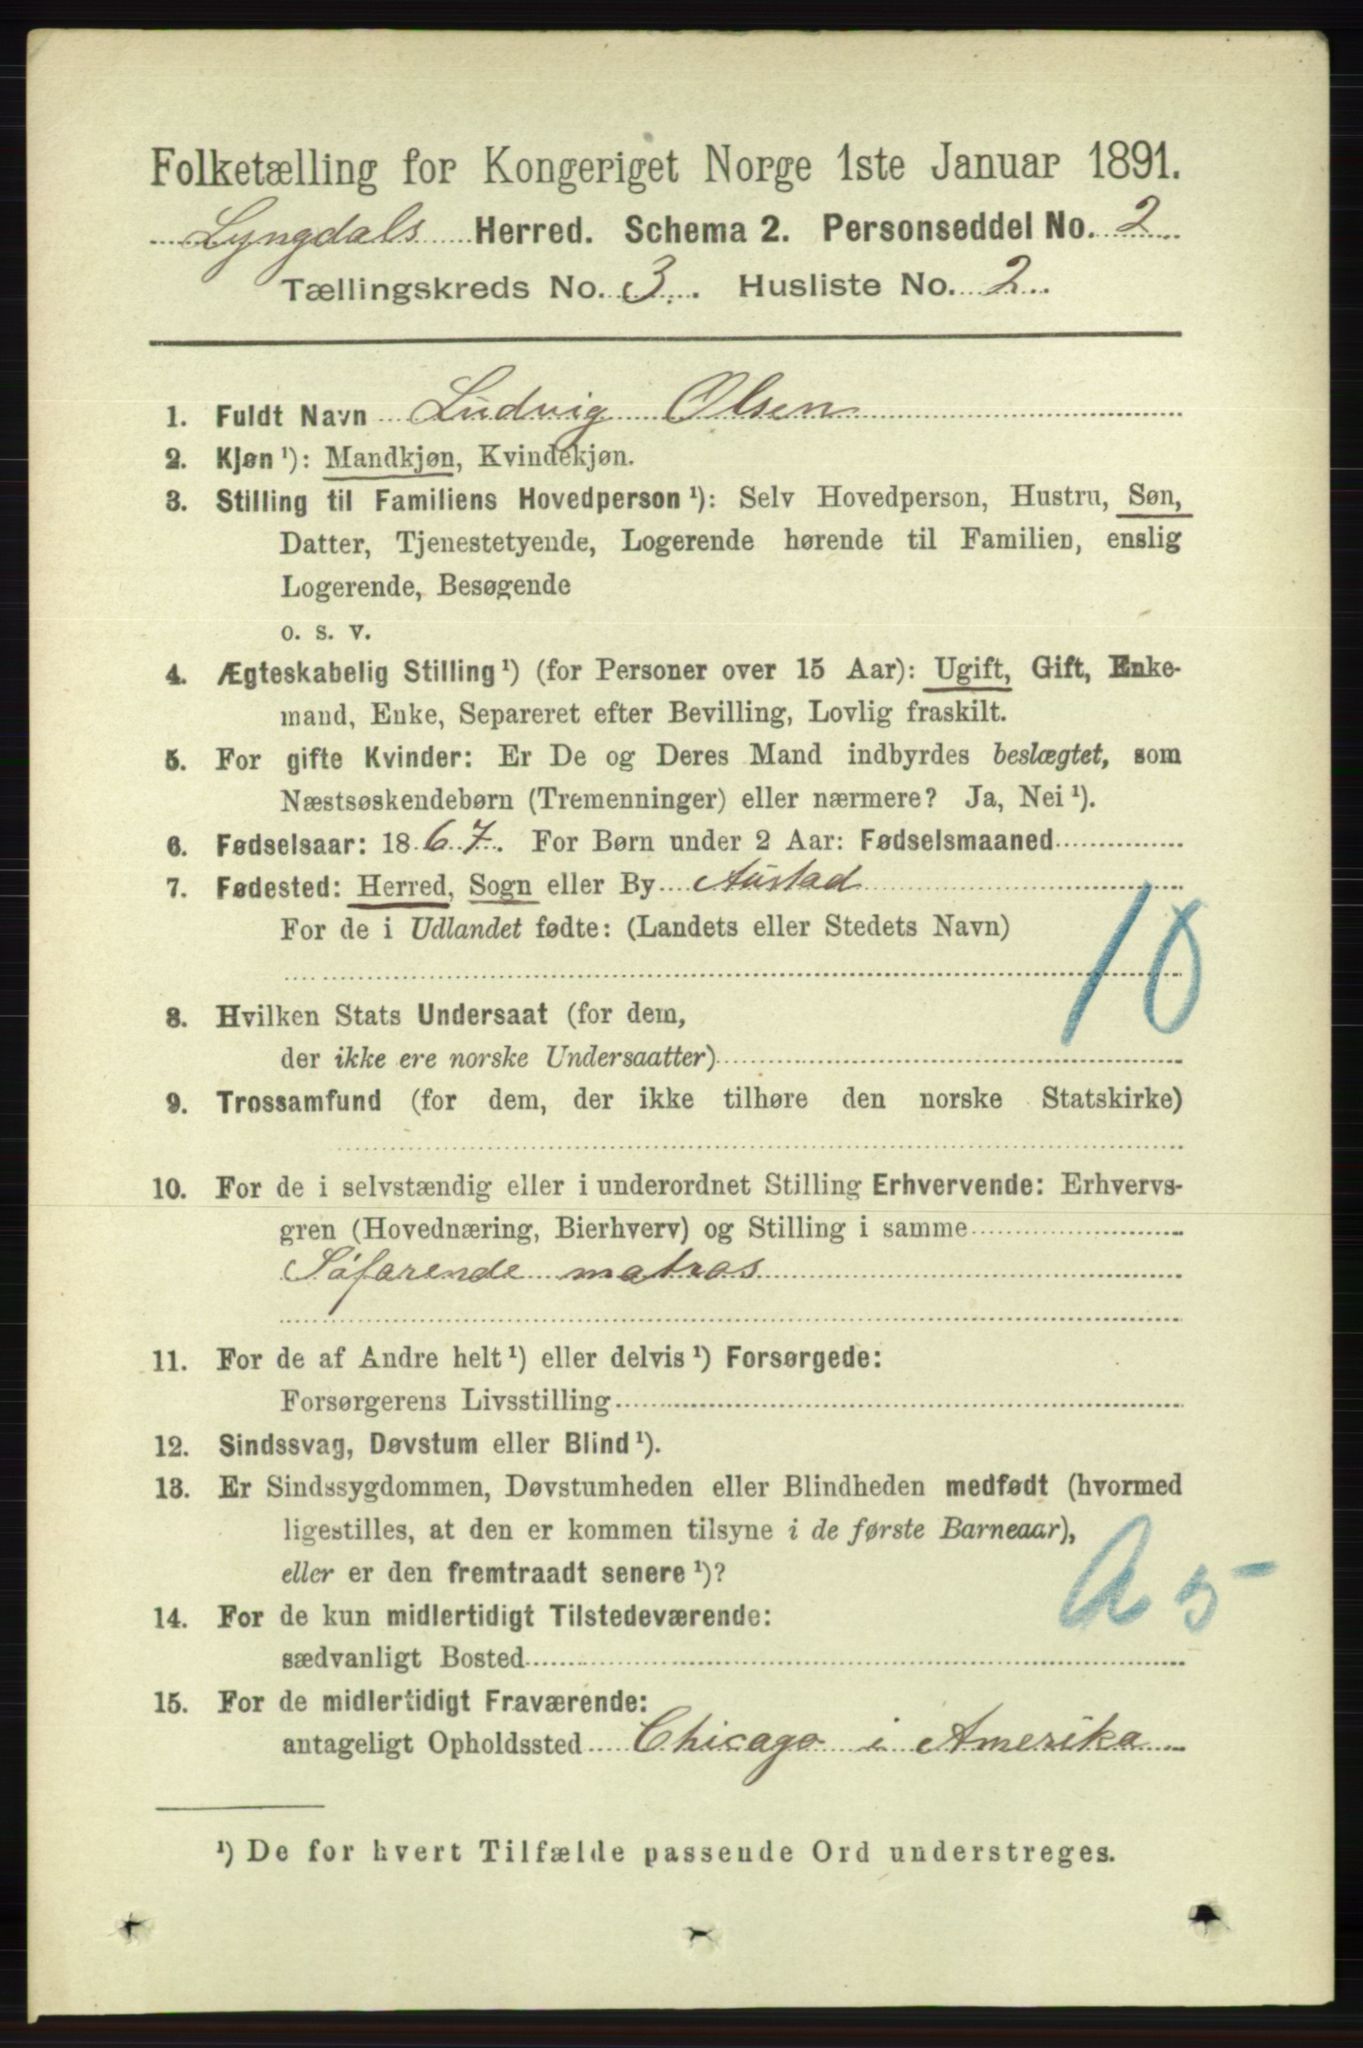 Folketælling for Kongeriget Norge 1ste Januar 1891.
Lyngdals Herred. Schema 2. Personseddel No. 2
Tællingskreds No. 3. Husliste No. 2.
1. Fuldt Navn Ludvig Olsen
2. Kjøn ¹): Mandkjøn, Kvindekjøn.
3. Stilling til Familiens Hovedperson ¹): Selv Hovedperson, Hustru, Søn,
Datter, Tjenestetyende, Logerende hørende til Familien, enslig
Logerende, Besøgende
o. s. v.
4. Ægteskabelig Stilling ¹) (for Personer over 15 Aar): Ugift, Gift, Enke-
mand, Enke, Separeret efter Bevilling, Lovlig fraskilt.
5. For gifte Kvinder: Er De og Deres Mand indbyrdes beslægtet, som
Næstsøskendebørn (Tremenninger) eller nærmere? Ja, Nei ¹).
6. Fødselsaar: 1867. For Børn under 2 Aar: Fødselsmaaned
7. Fødested: Herred, Sogn eller By Austad
For de i Udlandet fødte: (Landets eller Stedets Navn)
10
8. Hvilken Stats Undersaat (for dem,
der ikke ere norske Undersaatter)
9. Trossamfund (for dem, der ikke tilhøre den norske Statskirke)
10. For de i selvstændig eller i underordnet Stilling Erhvervende: Erhvervs-
gren (Hovednæring, Bierhverv) og Stilling i samme
Søfarende matros
11. For de af Andre helt ¹) eller delvis ¹) Forsørgede:
Forsørgerens Livsstilling
12. Sindssvag, Døvstum eller Blind ¹).
13. Er Sindssygdommen, Døvstumheden eller Blindheden medfødt (hvormed
ligestilles, at den er kommen tilsyne i de første Barneaar),
eller er den fremtraadt senere ¹)?
a 5
14. For de kun midlertidigt Tilstedeværende:
sædvanligt Bosted
15. For de midlertidigt Fraværende:
antageligt Opholdssted Chicago i Amerika
¹) De for hvert Tilfælde passende Ord understreges.